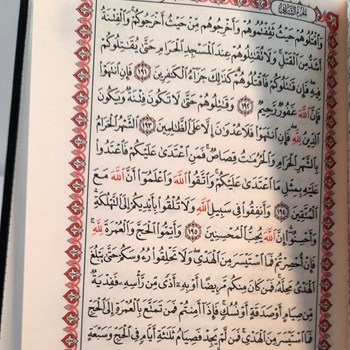 الجزء الثاني
وَٱقْتُلُوهُمْ حَيْثُ ثَقِفْتُمُوهُمْ وَأَخْرِجُوهُم مِّنْ حَيْثُ أَخْرَجُوكُمْ وَٱلْفِتْنَةُ
أَشَدُّ مِنَ ٱلْقَتْلِ وَلَا تُقَٰتِلُوهُمْ عِندَ ٱلْمَسْجِدِ ٱلْحَرَامِ حَتَّىٰ يُقَٰتِلُوكُمْ
فِيهِ فَإِن قَٰتَلُوكُمْ فَٱقْتُلُوهُمْ كَذَٰلِكَ جَزَآءُ ٱلْكَٰفِرِينَ ١٩١ فَإِنِ ٱنتَهَوْا۟
فَإِنَّ ٱللَّهَ غَفُورٌ رَّحِيمٌ ١٩٢ وَقَٰتِلُوهُمْ حَتَّىٰ لَا تَكُونَ فِتْنَةٌ وَيَكُونَ
ٱلدِّينُ لِلَّهِ فَإِنِ ٱنتَهَوْا۟ فَلَا عُدْوَٰنَ إِلَّا عَلَى ٱلظَّٰلِمِينَ ١٩٣ ٱلشَّهْرُ ٱلْحَرَامُ
بِٱلشَّهْرِ ٱلْحَرَامِ وَٱلْحُرُمَٰتُ قِصَاصٌ فَمَنِ ٱعْتَدَىٰ عَلَيْكُمْ فَٱعْتَدُوا۟
عَلَيْهِ بِمِثْلِ مَا ٱعْتَدَىٰ عَلَيْكُمْ وَٱتَّقُوا۟ ٱللَّهَ وَٱعْلَمُوٓا۟ أَنَّ ٱللَّهَ مَعَ
ٱلْمُتَّقِينَ ١٩٤ وَأَنفِقُوا۟ فِى سَبِيلِ ٱللَّهِ وَلَا تُلْقُوا۟ بِأَيْدِيكُمْ إِلَى ٱلتَّهْلُكَةِ
وَأَحْسِنُوٓا۟ إِنَّ ٱللَّهَ يُحِبُّ ٱلْمُحْسِنِينَ ١٩٥ وَأَتِمُّوا۟ ٱلْحَجَّ وَٱلْعُمْرَةَ لِلَّهِ
فَإِنْ أُحْصِرْتُمْ فَمَا ٱسْتَيْسَرَ مِنَ ٱلْهَدْىِ وَلَا تَحْلِقُوا۟ رُءُوسَكُمْ حَتَّىٰ يَبْلُغَ
ٱلْهَدْىُ مَحِلَّهُۥ فَمَن كَانَ مِنكُم مَّرِيضًا أَوْ بِهِۦٓ أَذًى مِّن رَّأْسِهِۦ فَفِدْيَةٌ
مِّن صِيَامٍ أَوْ صَدَقَةٍ أَوْ نُسُكٍ فَإِذَآ أَمِنتُمْ فَمَن تَمَتَّعَ بِٱلْعُمْرَةِ إِلَى ٱلْحَجِّ
فَمَا ٱسْتَيْسَرَ مِنَ ٱلْهَدْىِ فَمَن لَّمْ يَجِدْ فَصِيَامُ ثَلَٰثَةِ أَيَّامٍ فِى ٱلْحَجِّ وَسَبْعَةٍ